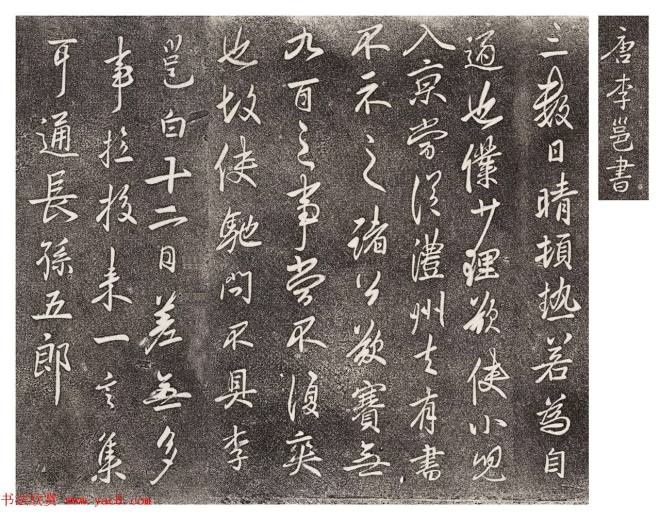 唐李邕書
三數日晴頓熱若為自
適也僕少理欲使小兒
入京嘗從澧州去有書
不示之諸公欲賽無
九百之事嘗不復奕
也故使馳問不具李
邕白十二日差無多
事拉投來一言集
耳通長孫五郎
书法欣赏 www.yac8.com